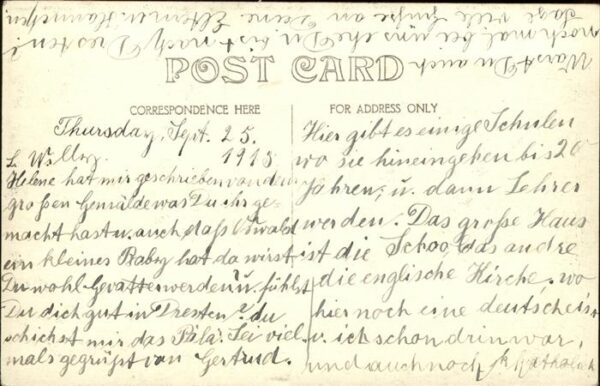 POST CARD
CORRESPONDENCE HERE
FOR ADDRESS ONLY
Thursday, Sept. 25.
1913.
L.
Helene hat mir geschrieben von dem
großen Gemälde was Du ihr ge-
macht hast u. auch daß Oswald
ein kleines Baby hat da wirst
Du wohl Gevatter werden u. fühlst
Du dich gut in Dresten? du
schickst mir das Pala. Sei viel-
mals gegrüßt von Gertrud.
Hier gibt es einige Schulen
wo sie hineingehen bis 20
Jahren, u. dann Lehrer
werden. Das große Haus
ist die School das andre
die englische Kirche, wo
hier noch eine deutsche ist
u. ich schon drin war,
und auch noch
Warst Du auch
noch mal bei uns ehe Du bist nach Dresten?
Sage viele Grüße an Deine Eltern u.